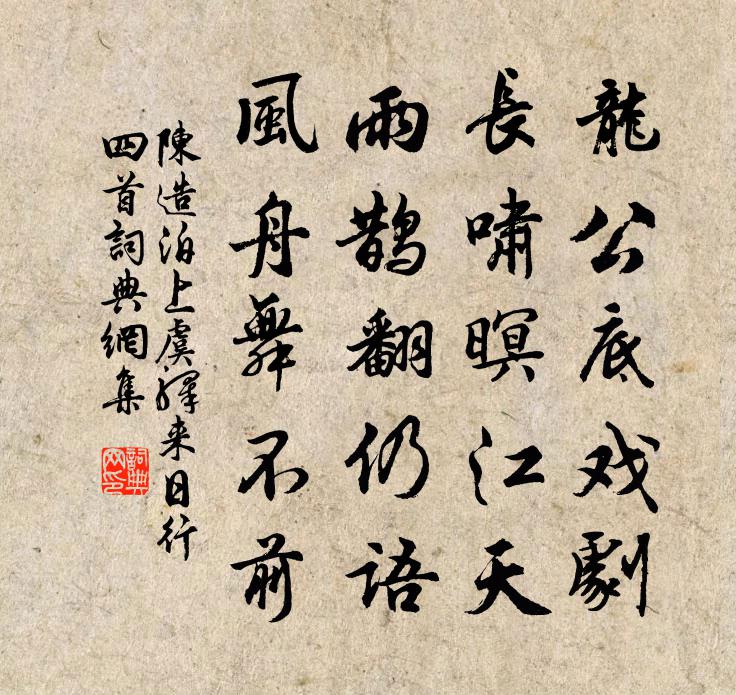 龍公底戏劇
長嘯暝江天
雨鵲翻仍語
風舟舞不前
陳造泊上虞驛来日行
四首詞典網集
詞典网印